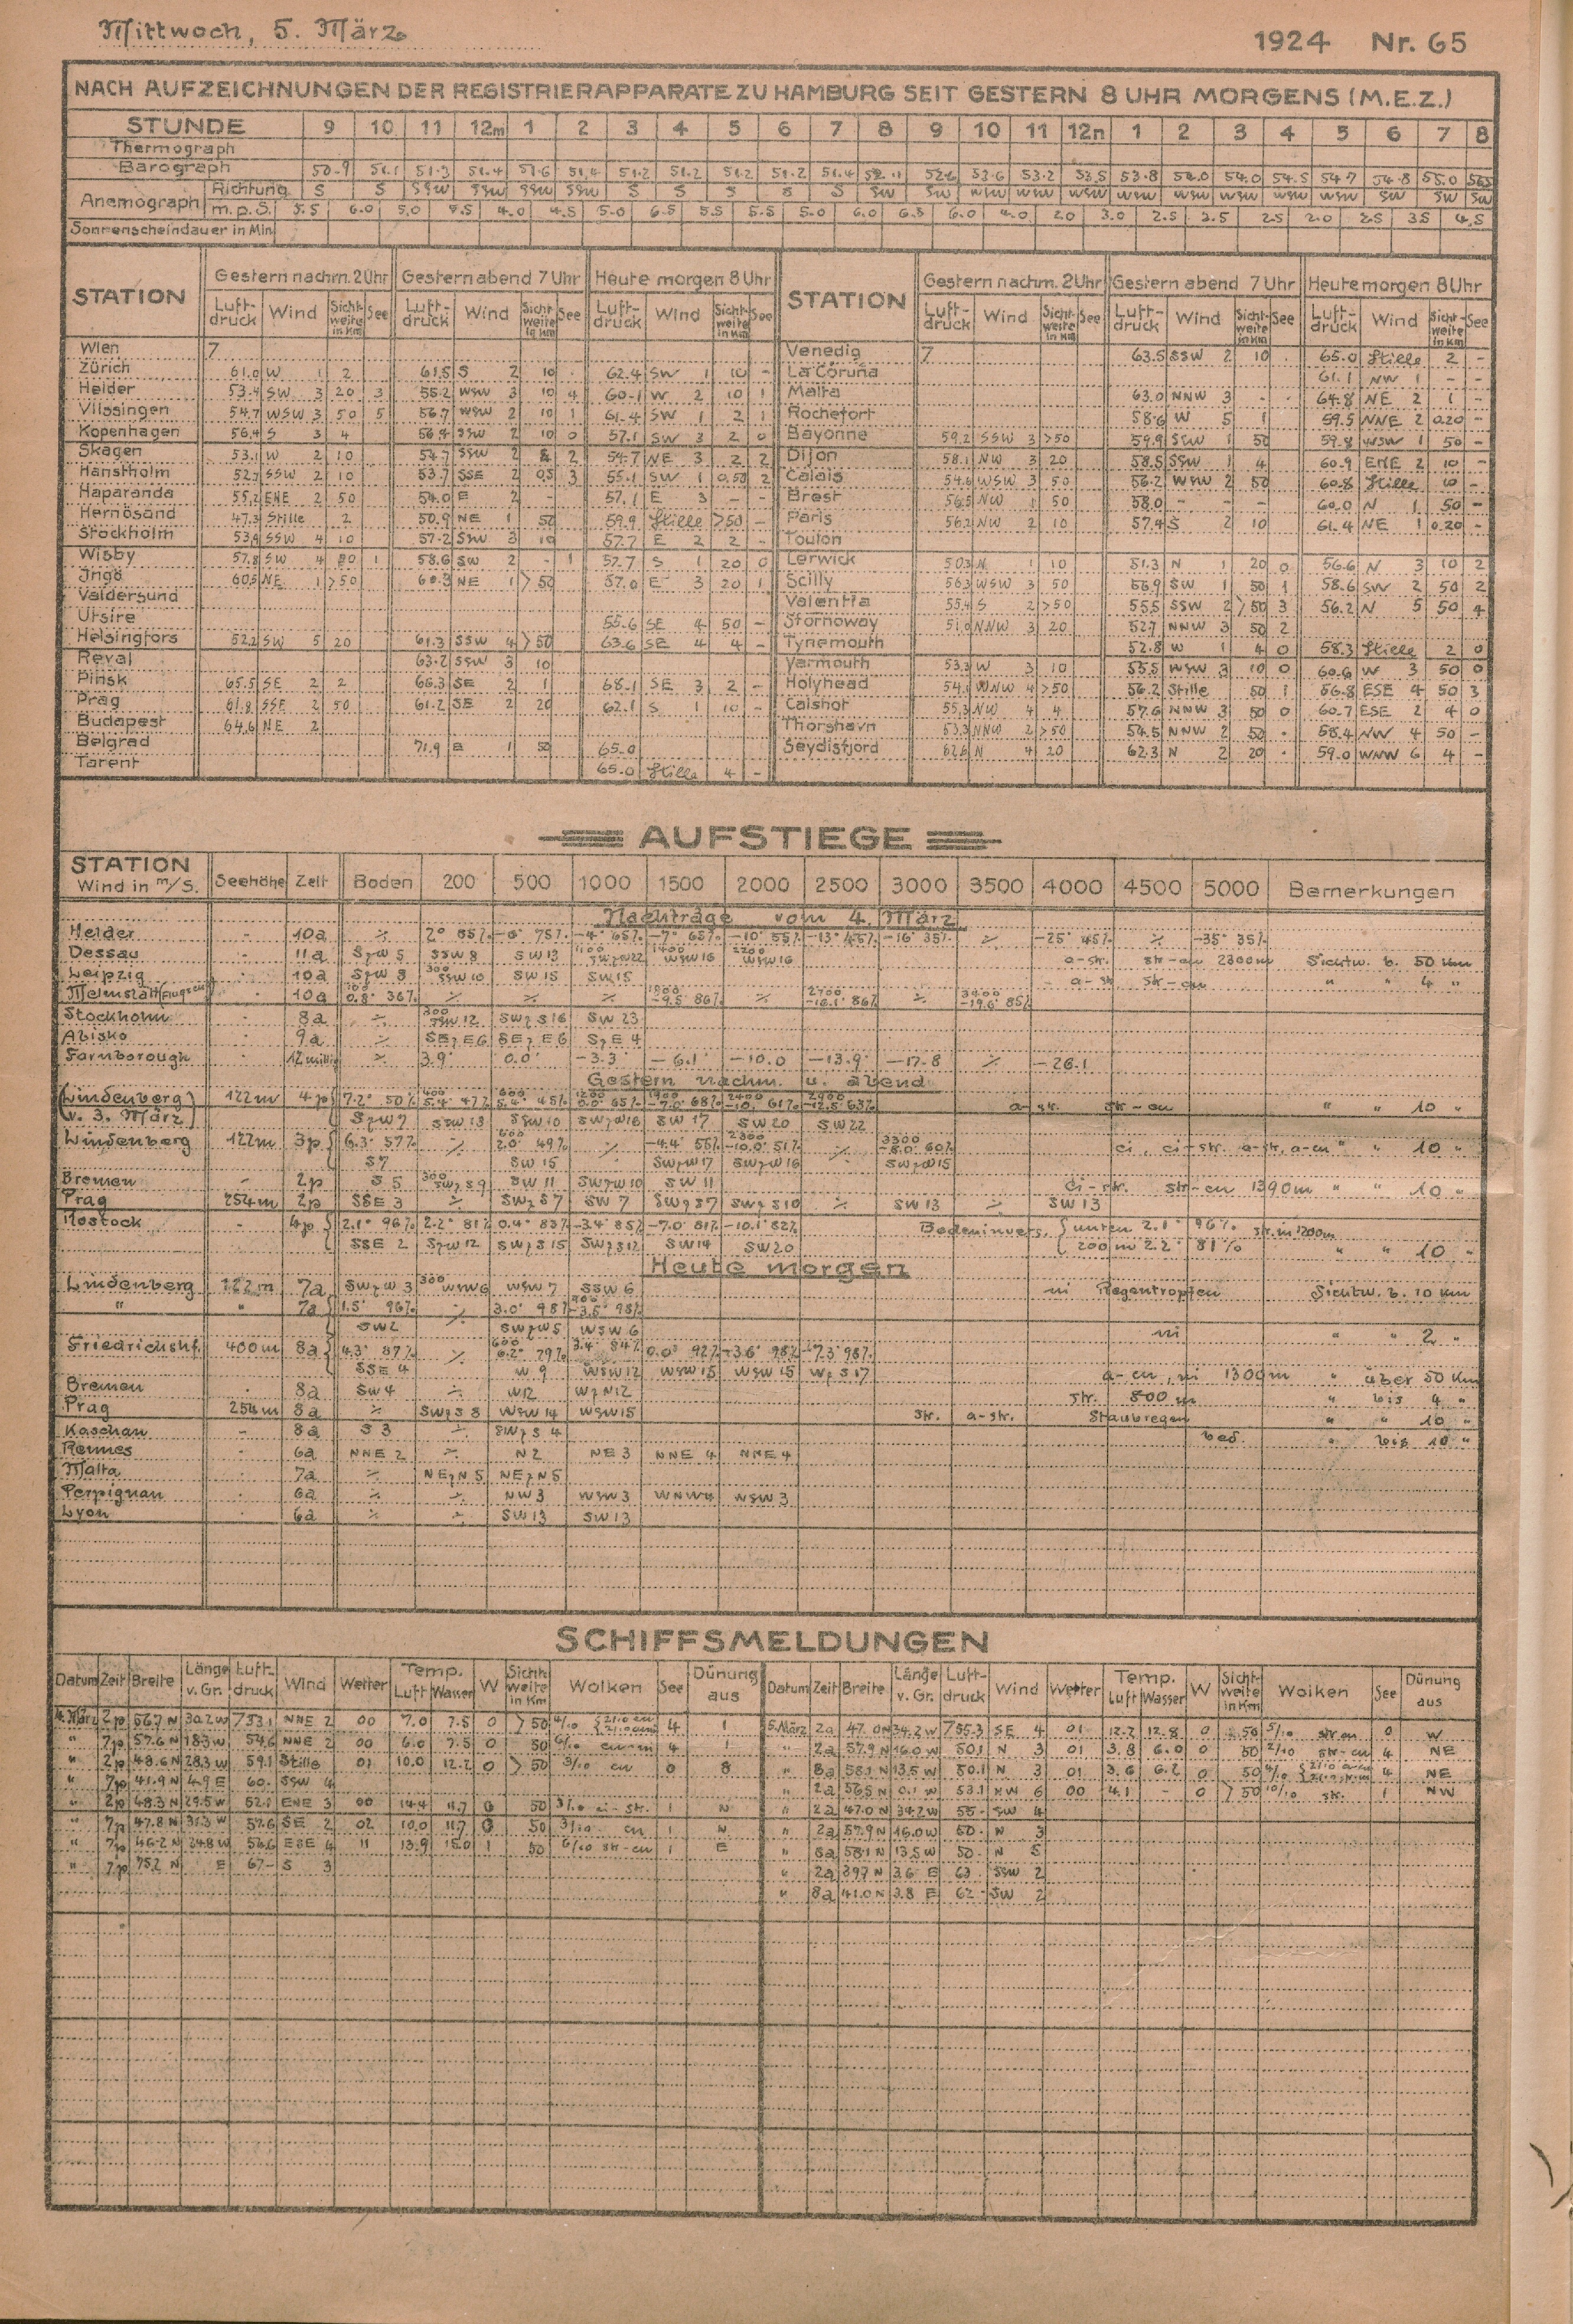 Mittwoch, 5. März
1924 Nr. 65
NACH AUFZEICHNUNGEN DER REGISTRIERAPPARATE ZU HAMBURG SEIT GESTERN 8 UHR MORGENS (M.E.Z.)
STUNDE 9 10 11 12m 1 2 3 4 5 6 7 8 9 10 11 12n 1 2 3 4 5 6 7 8
Thermograph
Barograph 50.9 51.1 51.3 51.4 51.6 51.4 51.2 51.2 51.2 51.2 51.4 52.1 52.6 53.6 53.2 53.5 53.8 54.0 54.0 54.5 54.7 54.8 55.0
Anemograph Richtung S S SSW SSW SSW SSW S S S S S SW SW WSW WSW WSW WSW WSW WSW WSW WSW SW SW SW
m.p.S. 5.5 6.0 5.0 5.5 4.0 4.5 5.0 6.5 5.5 5.5 5.0 6.0 6.5 6.0 4.0 2.0 3.0 2.5 2.5 2.5 2.0 2.5 3.5 4.5
Sonnenscheindauer in Min.
STATION Gestern nachm. 2 Uhr Gestern abend 7 Uhr Heute morgen 8 Uhr STATION Gestern nachm. 2 Uhr Gestern abend 7 Uhr Heute morgen 8 Uhr
Luft-druck Wind Sicht-weite in Km See Luft-druck Wind Sicht-weite in Km See Luft-druck Wind Sicht-weite in Km See Luft-druck Wind Sicht-weite in Km See Luft-druck Wind Sicht-weite in Km See Luft-druck Wind Sicht-weite in Km See
Wien 7 Venedig 7 63.5 SSW 2 10 . 65.0 Stille 2 -
Zürich 61.0 W 1 2 61.5 S 2 10 . 62.4 SW 1 10 - La Coruña 61.1 NW 1 - -
Helder 53.4 SW 3 20 3 55.2 WSW 3 10 4 60.1 W 2 10 1 Malta 63.0 NNW 3 - . 64.8 NE 2 1 -
Vlissingen 54.7 WSW 3 50 5 56.7 WSW 2 10 1 61.4 SW 1 2 1 Rochefort 58.6 W 5 1 59.5 NNE 2 0.20 -
Kopenhagen 56.4 S 3 4 56.4 SSW 2 10 0 57.1 SW 3 2 0 Bayonne 59.2 SSW 3 >50 59.9 SSW 1 50 59.8 WSW 1 50 -
Skagen 53.1 W 2 10 54.7 SSW 2 2 54.7 NE 3 2 2 Dijon 58.1 NW 3 20 58.5 SSW 1 4 60.9 ENE 2 10 -
Hanstholm 52.7 SSW 2 10 53.7 SSE 2 0.5 3 55.1 SW 1 0.50 2 Calais 54.6 WSW 3 50 56.2 WSW 2 50 60.8 Stille 10 -
Haparanda 55.2 ENE 2 50 54.0 E 2 - 57.1 E 3 - - Brest 56.5 NW 1 50 58.0 - - - 60.0 N 1 50 -
Hernösand 47.3 Stille 2 50.9 NE 1 50 59.9 Stille >50 - Paris 56.2 NW 2 10 57.4 S 2 10 61.4 NE 1 0.20 -
Stockholm 53.4 SSW 4 10 57.2 SSW 3 10 57.7 E 2 2 - Toulon
Wisby 57.8 SW 4 20 1 58.6 SW 2 - 1 57.7 S 1 20 0 Lerwick 50.3 N 1 10 51.3 N 1 20 0 56.6 N 3 10 2
Ingö 60.5 NE 1 >50 60.3 NE 1 >50 57.0 E 3 20 1 Scilly 56.3 WSW 3 50 56.9 SW 1 50 1 58.6 SW 2 50 2
Valdersund Valentia 55.4 S 2 >50 55.5 SSW 2 >50 3 56.2 N 5 50 4
Utsire 55.6 SE 4 50 - Stornoway 51.0 NNW 3 20 52.7 NNW 3 50 2
Helsingfors 52.2 SW 5 20 61.3 SSW 4 >50 63.6 SE 4 4 - Tynemouth 52.8 W 1 4 0 58.3 Stille 2 0
Reval 63.2 SSW 3 10 Yarmouth 53.3 W 3 10 55.5 WSW 3 10 0 60.6 W 3 50 0
Pinsk 65.5 SE 2 2 66.3 SE 2 1 68.1 SE 3 2 - Holyhead 54.1 WNW 4 >50 56.2 Stille 50 1 56.8 ESE 4 50 3
Prag 61.8 SSE 2 50 61.2 SE 2 20 62.1 S 1 10 - Calshot 55.3 NW 4 4 57.6 NNW 3 50 0 60.7 ESE 2 4 0
Budapest 64.6 NE 2 Thorshavn 53.3 NNW 2 >50 54.5 NNW 2 50 . 58.4 NW 4 50 -
Belgrad 71.9 E 1 50 65.0 Seydisfjord 62.6 N 4 20 62.3 N 2 20 . 59.0 WNW 6 4 -
Tarent 65.0 Stille 4 -
AUFSTIEGE
STATION Wind in m/S. Seehöhe Zeit Boden 200 500 1000 1500 2000 2500 3000 3500 4000 4500 5000 Bemerkungen
Nachträge vom 4. März
Helder - 10a ٪ 2° 85% 75% -4° 65% -7° 65% -10° 55% -13° 45% -16° 35% ٪ -25° 45% ٪ -35° 35%
Dessau - 11a SzW 5 SSW 8 SW 13 WSW 16 WSW 16 a-str. str-cu 2300m Sichtw. b. 50 Km
Leipzig . 10a SzW 8 300 SSW 10 SW 15 SW 15 a-str str-cu " " 4 "
10a 0.8° 36% ٪ ٪ ٪ -9.5° 86% ٪ -16.1° 86% ٪ -19.6° 85%
Stockholm . 8a ٪ 300 SSW 12 SWzS 16 SW 23
Abisko . 9a SEzE 6 SEzE 6 SzE 4
Farnborough . 12 mittg ٪ 3.9° 0.0° -3.3° -6.1° -10.0 -13.9° -17.8 ٪ -26.1
Gestern nachm. u. abend
(Lindenberg) 122m 4p 7.2° 50% 400 5.4° 47% 600 5.4° 45% 1200 0.0° 65% 1900 -7.0° 68% 2400 61% 2900 -12.5° 63% a-str. str-cu " " 10 "
(v. 3. März) SzW 7 SSW 13 SSW 10 SWzW 16 SW 17 SW 20 SW 22
Lindenberg 122m 3p 6.3° 57% ٪ 600 2.0° 49% ٪ -4.4° 55% 2300 -10.0° 51% ٪ 3300 60% ci, ci-str. a-str, a-cu " " 10 "
S 7 SW 15 SWzW 17 SWzW 16 SWzW 15
Bremen - 2p S 5 300 SWzS 9 SW 11 SWzW 10 SW 11 ci-str. str-cu 1390m " " 10 "
Prag 254m 2p SSE 3 ٪ SWzS 7 SW 7 SWzS 7 SWzS 10 ٪ SW 13 ٪ SW 13
Rostock - 4p 2.1° 96% 2.2° 81% 0.4° 83% -3.4° 85% -7.0° 81% -10.1° 82% Bodeninvers. unten 2.1° 96% str. in 1200m
SSE 2 SzW 12 SWzS 15 SWzS 12 SW 14 SW 20 200 m 2.2° 81% " " 10 "
Heute morgen
Lindenberg 122m 7a SWzW 3 300 WSW 6 WSW 7 SSW 6 ni Regentropfen Sichtw. b. 10 Km
" " 7a 1.5° 96% ٪ 3.0° 98% 900 -3.5° 98%
SW 2 SWzW 5 WSW 6 ni " " 2 "
Friedrichshf. 400m 8a 4.3° 87% ٪ 600 6.2° 79% 3.4° 84% 0.0° 92% -3.6° 98% -7.3° 98%
SSE 4 W 9 WSW 12 WSW 15 WSW 15 WzS 17 a-cu, ni 1300m " über 50 Km
Bremen . 8a SW 4 ٪ W 12 WzN 12 str. 800 m " bis 4 "
Prag 254m 8a ٪ SWzS 8 WSW 14 WSW 15 str. a-str. Staubregen " " 10 "
Kaschau - 8a S 3 ٪ SWzS 4 bed. " bis 10 "
Rennes . 6a NNE 2 ٪ N 2 NE 3 NNE 4 NNE 4
Malta . 7a ٪ NEzN 5 NEzN 5
Perpignan . 6a ٪ ٪ NW 3 WSW 3 WNW 4 WSW 3
Lyon . 6a ٪ ٪ SW 13 SW 13
SCHIFFSMELDUNGEN
Datum Zeit Breite Länge v. Gr. Luft-druck Wind Wetter Temp. Luft Wasser W Sicht-weite in Km Wolken See Dünung aus Datum Zeit Breite Länge v. Gr. Luft-druck Wind Wetter Temp. Luft Wasser W Sicht-weite in Km Wolken See Dünung aus
4. März 2p 56.7 N 30.2 W 753.1 NNE 2 00 7.0 7.5 0 >50 4 1 5. März 2a 47.0 N 34.2 W 755.3 SE 4 01 12.2 12.8 0 50 5/10 str cu 0 W
" 7p 57.6 N 18.3 W 54.6 NNE 2 00 6.0 7.5 0 50 4 1 " 2a 57.9 N 16.0 W 50.1 N 3 01 3.8 6.0 0 50 2/10 str-cu 4 NE
" 2p 48.6 N 28.3 W 59.1 Stille 01 10.0 12.2 0 >50 3/10 cu 0 8 " 8a 58.1 N 13.5 W 50.1 N 3 01 3.6 6.2 0 50 4 NE
" 7p 41.9 N 4.9 E 60. SSW 4 " 2a 56.5 N 0.1 W 53.1 NW 6 00 4.1 - 0 >50 10/10 str. 1 NW
" 2p 48.3 N 29.5 W 52.1 ENE 3 00 14.4 11.7 0 50 3/10 ci-str. 1 N " 2a 47.0 N 34.2 W 55- SW 4
" 7p 47.8 N 31.3 W 57.6 SE 2 02 10.0 11.7 0 50 3/10 cu 1 N " 2a 57.9 N 16.0 W 50- N 3
" 7p 46.2 N 24.8 W 56.6 ESE 4 11 13.9 15.0 1 50 6/10 str-cu 1 E " 8a 58.1 N 13.5 W 50- N 5
" 7p E 67- S 3 " 2a 39.7 N 3.6 E 63 SSW 2
" 8a 41.0 N 3.8 E 62- SW 2